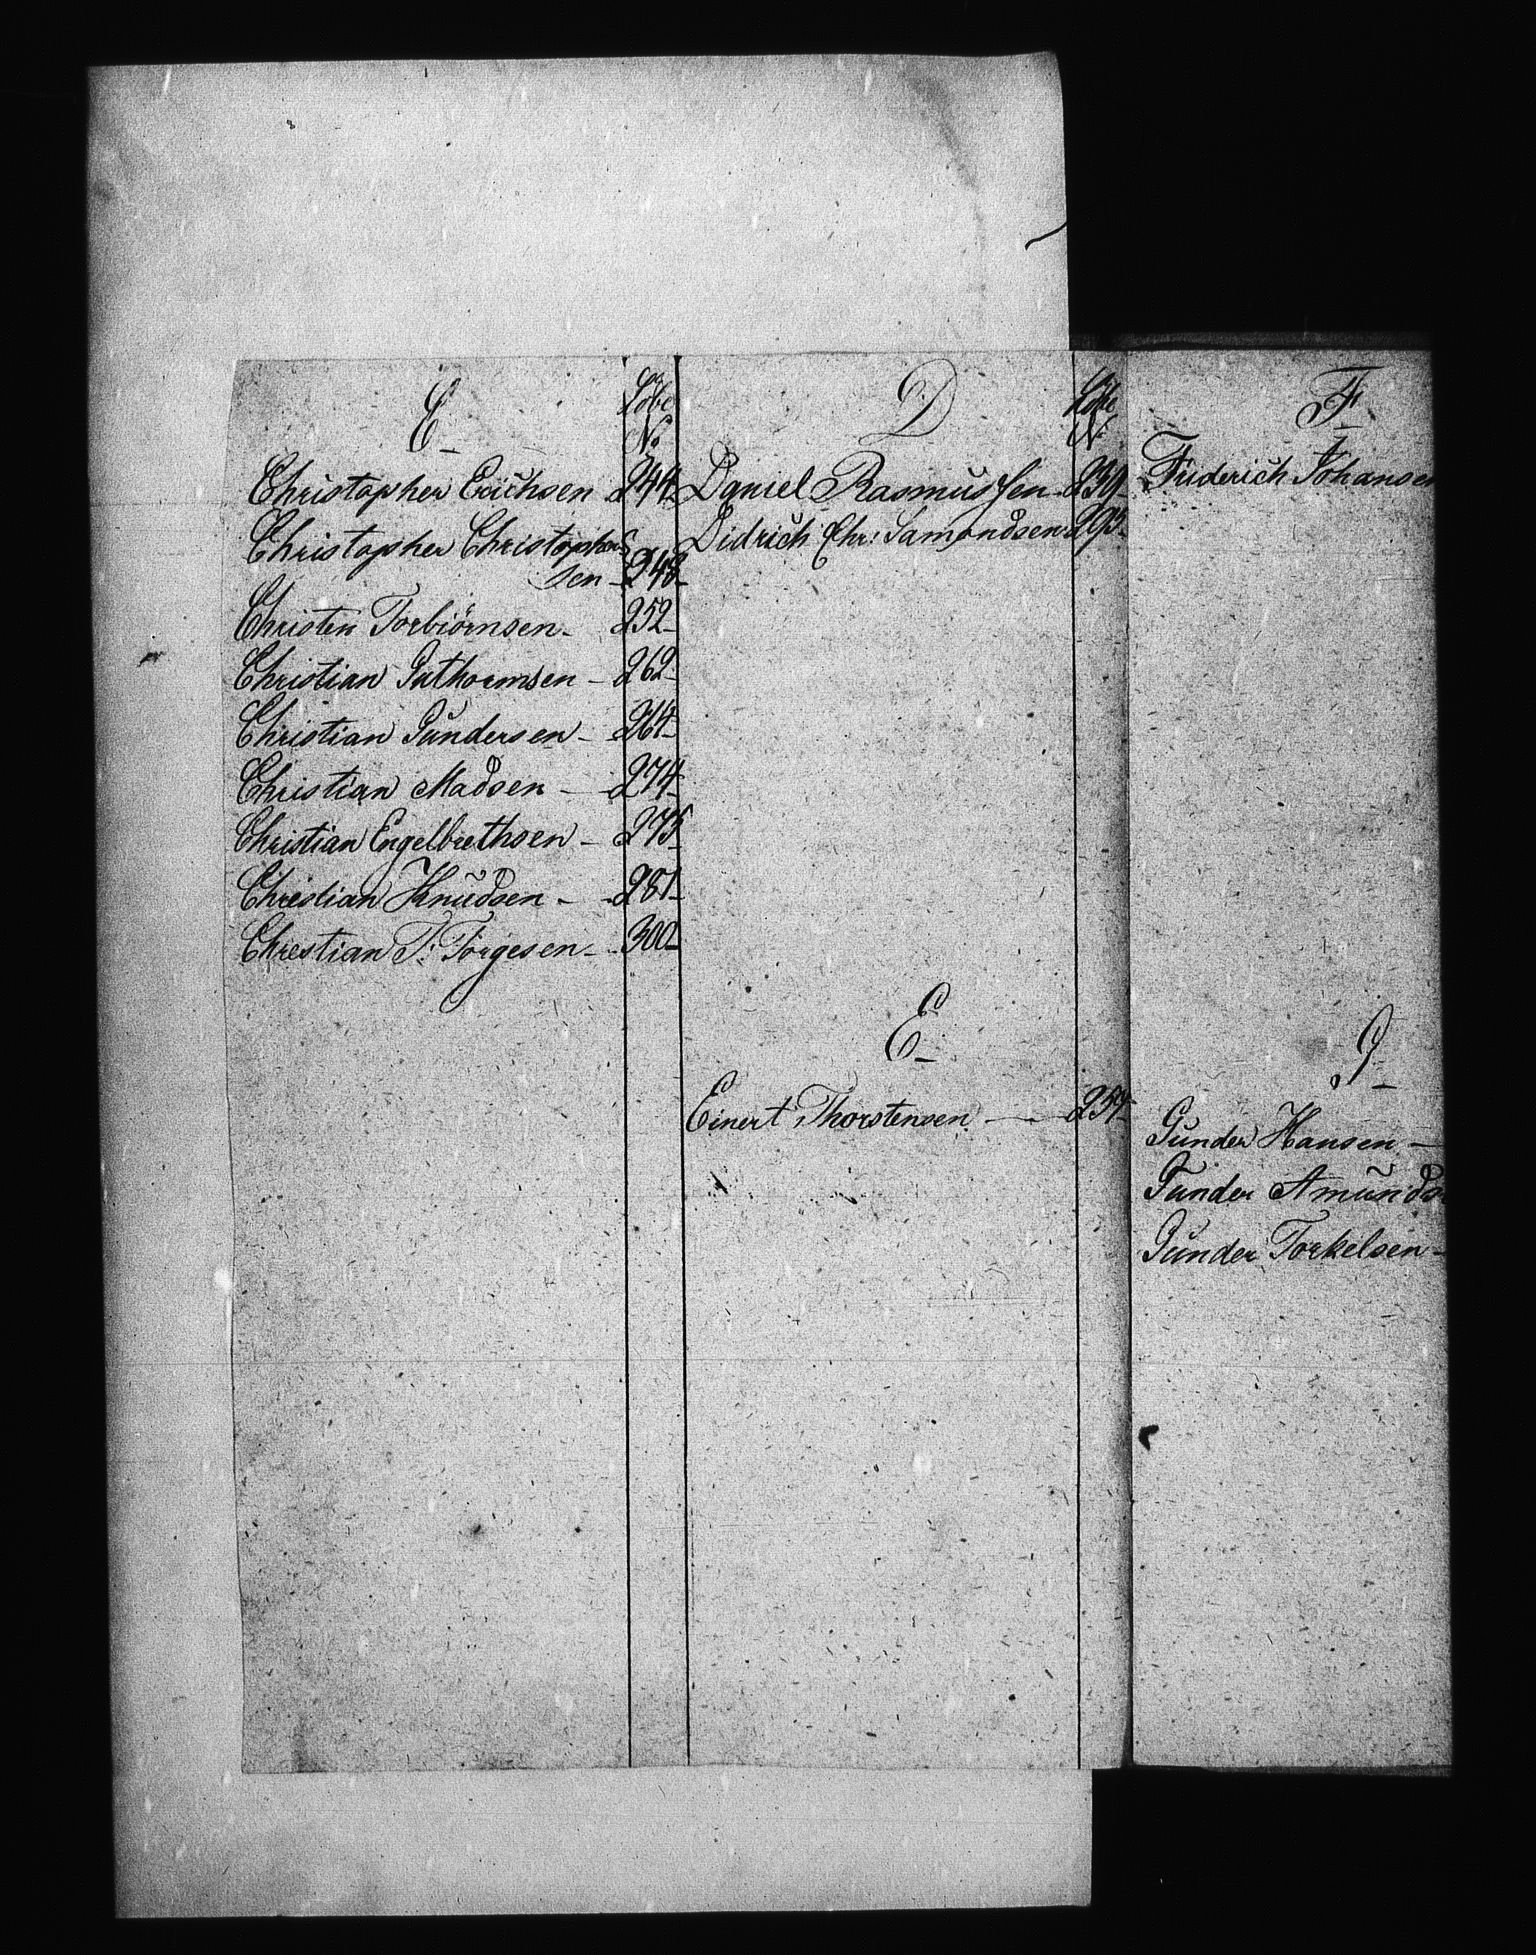 C
Löbe
No
Christopher Erichsen 244
Christopher Christopher
sen 248
Christen Torbiörnsen 252
Christian Guthormsen 262
Christian Gundersen 264
Christian Madsen 274
Christian Engelbrethsen 275
Christian Knudsen 281
Christian T. Törgesen 300
D
Löbe
No
Daniel Rasmussen 239
Didrich Chr: Samondsen 293
E
Einert Thorstensen
F
Friderich Johansen
G
Gunder Hansen
Gunder Amunds
Gunder Torkelsen